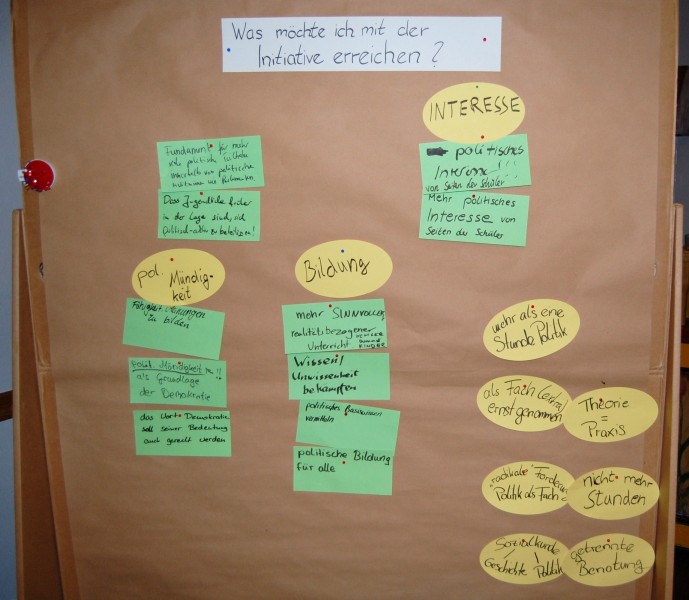 Was möchte ich mit der
Initiative erreichen?
INTERESSE
politisches
Interesse!!!
von Seiten der Schüler
Mehr politisches
Interesse von
Seiten der Schüler
Fundament für mehr
politisch
von politischen
Dass Jugendliche früher
in der Lage sind, sich
politisch zu beteiligen!
pol. Mündig-
keit
Fähigkeit Meinungen
zu bilden
polit. Mündigkeit !!
als Grundlage
der Demokratie
das Wort Demokratie
soll seiner Bedeutung
auch gerecht werden
Bildung
mehr SINNVOLLER,
realitätsbezogener
Unterricht FÜR
KINDER
Wissen/
Unwissenheit
bekämpfen
politisches Basiswissen
vermitteln
politische Bildung
für alle
mehr als eine
Stunde Politik
als Fach
ernstgenommen
Theorie
=
Praxis
"radikale" Forderung
Politik als Fach
nicht mehr
Stunden
Sozialkunde
Geschichte Politik
getrennte
Benotung